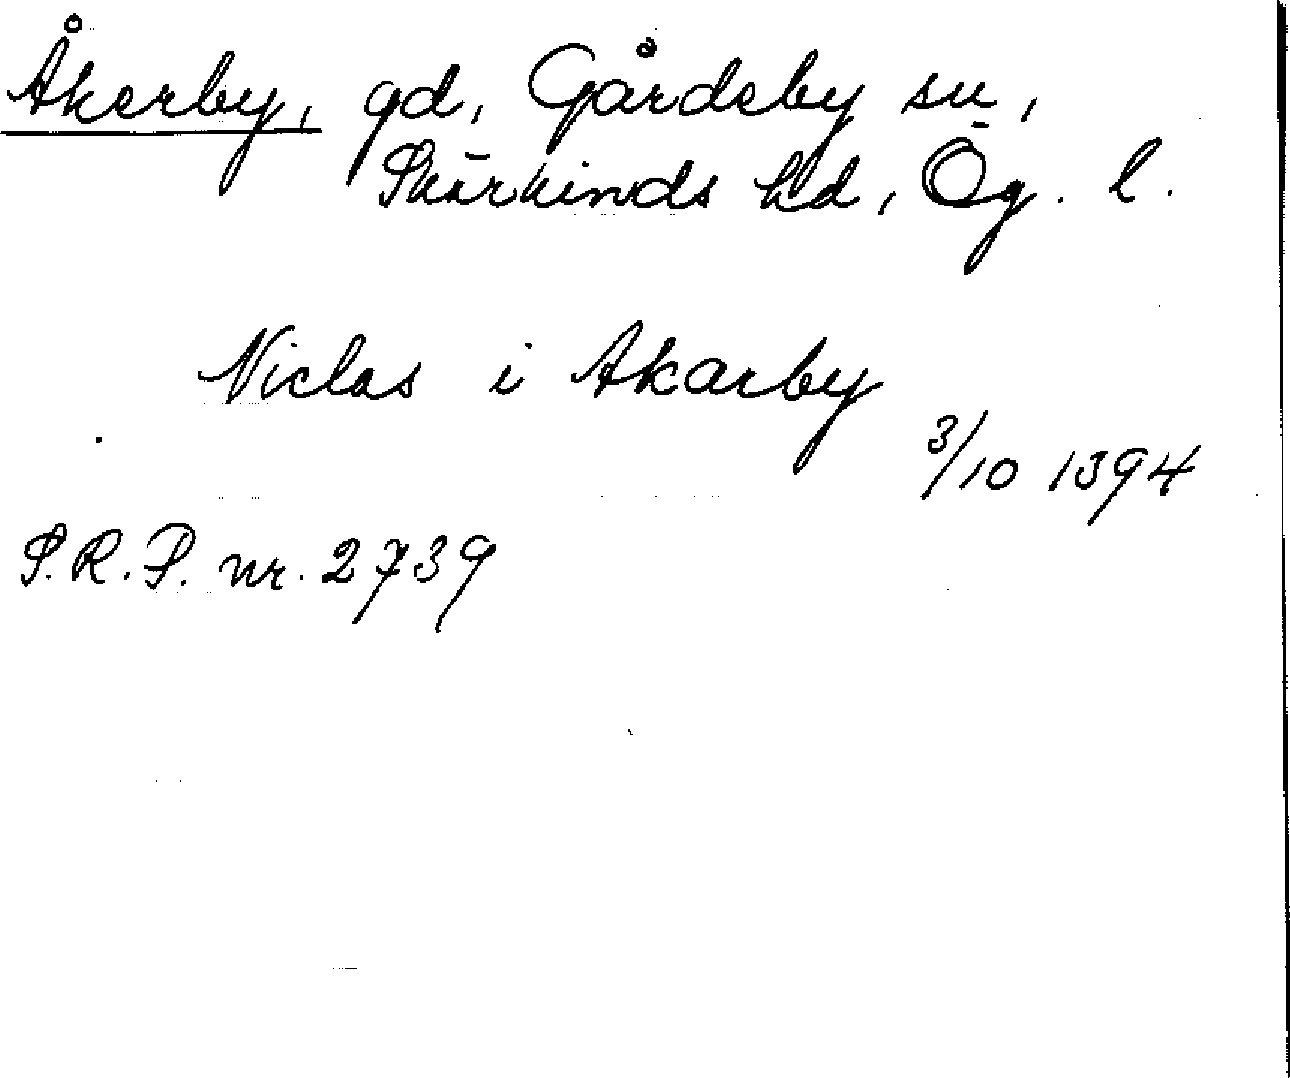 Åkerby, gd, Gårdeby sn,
Skärkinds hd, Ög. l.
Niclas i Akarby
3/10 1394
S.R.P. nr. 2739